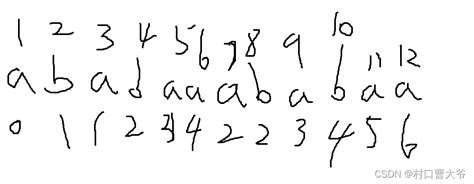 1 2 3 4 5 6 7 8 9 10 11 12
a b a b a a a b a b a a
0 1 1 2 3 4 2 2 3 4 5 6
CSDN @村口曹大爷